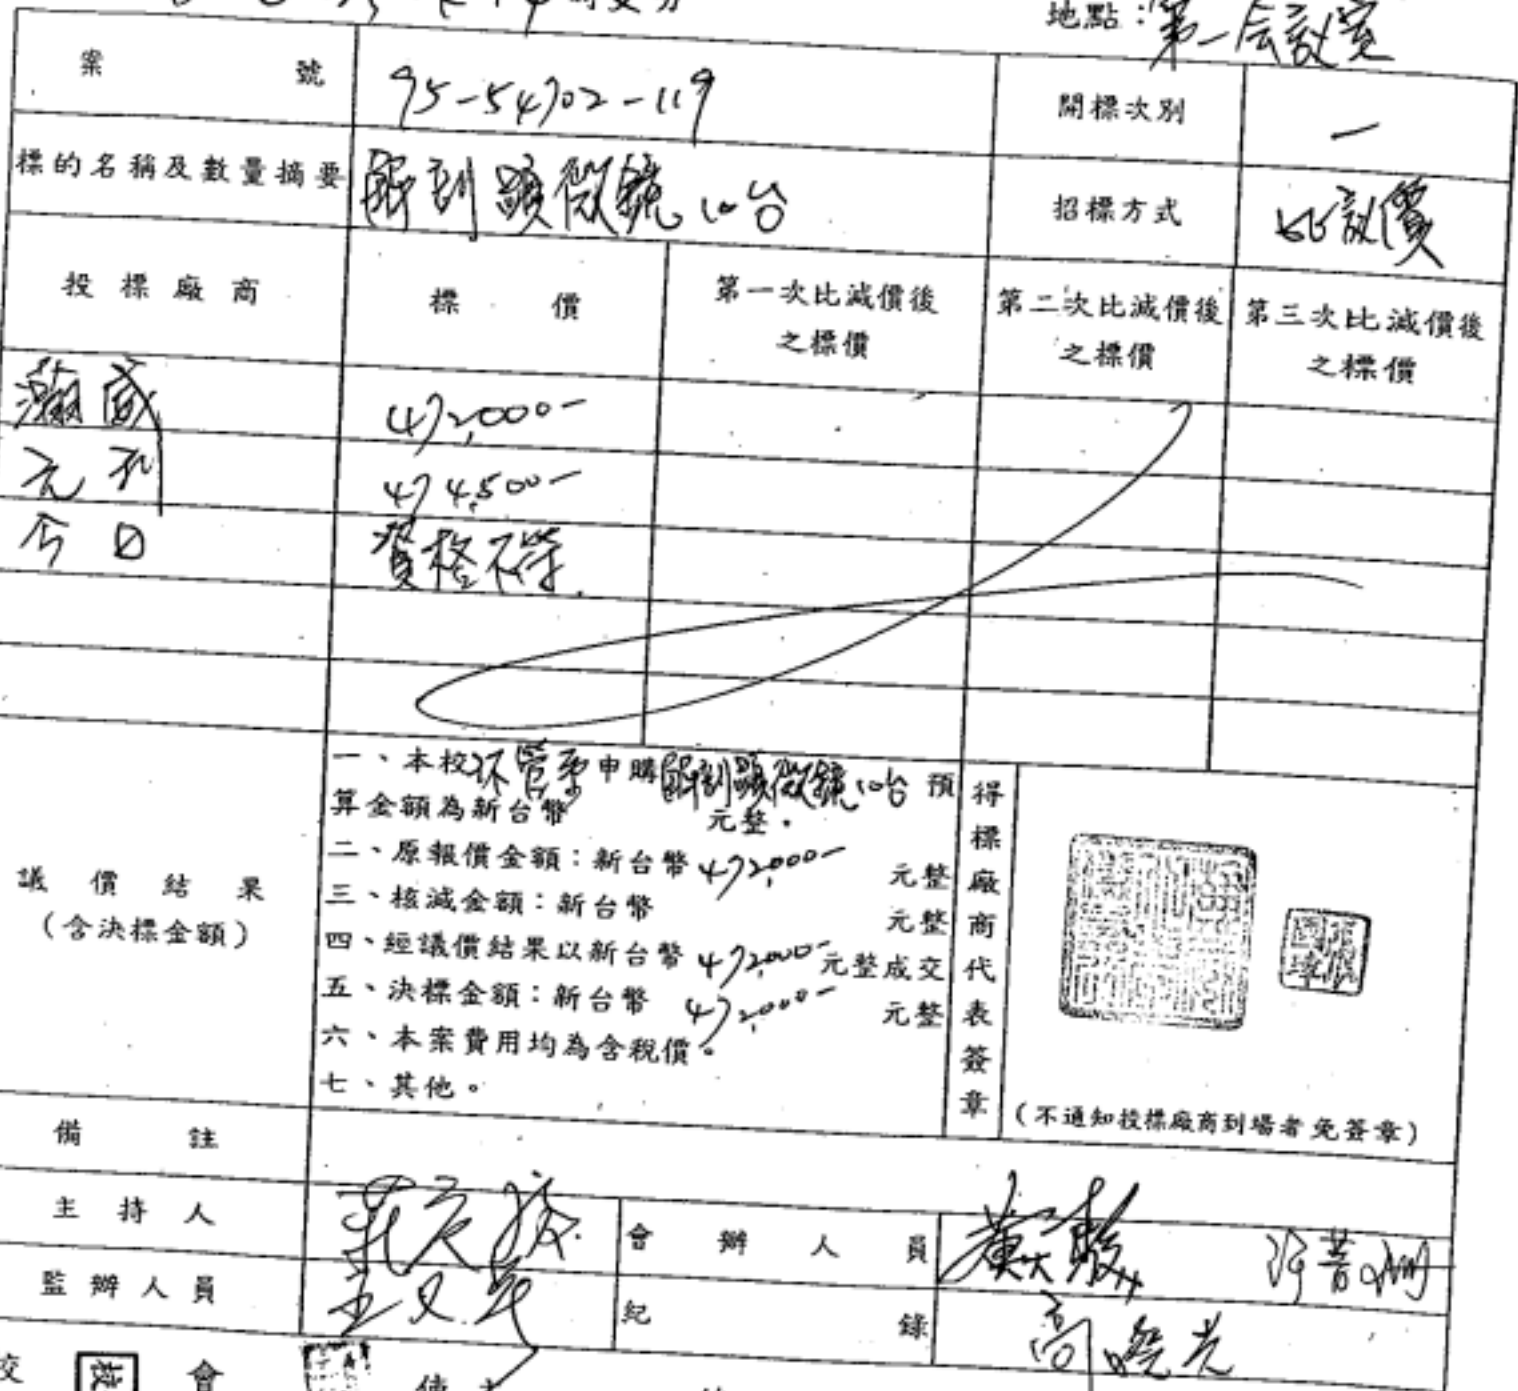 地點：第一会議室
案號 95-54702-119 開標次別 一
標的名稱及數量摘要 解剖顯微鏡10台 招標方式 比議價
投標廠商 標價 第一次比減價後之標價 第二次比減價後之標價 第三次比減價後之標價
瀚威 472,000-
元利 474,500-
今日 資格不符
一、本校環管系申購解剖顯微鏡10台預
算金額為新台幣 元整。
二、原報價金額：新台幣472,000- 元整
三、核減金額：新台幣 元整
四、經議價結果以新台幣472,000-元整成交
五、決標金額：新台幣472,000- 元整
六、本案費用均為含稅價。
七、其他。
議價結果
（含決標金額）
得標廠商代表簽章
（不通知投標廠商到場者免簽章）
備註
主持人 會辦人員
監辦人員 紀錄
會